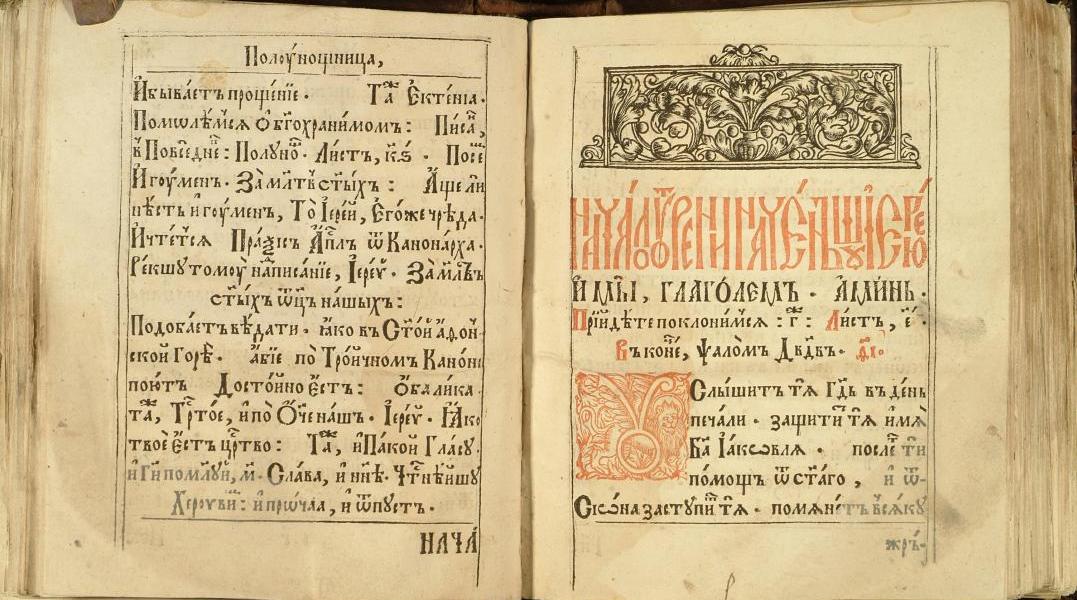 Полоу́нощница,
И҆ быва́етъ проще́нїе. Та́ж Є҆ктенїа̀.
Помо́лѣмсѧ Ѻ҆ бг҃охрани́момъ: Пи́са,
в Повсⷣе́дне: Полуно. Ли́стъ, к҃ѕ. Посе
И҆гоу́менъ. За мл҃твъ ст҃ы́хъ: А҆́ще ли
нѣ́сть и҆гоу́менъ, То̀ І҆ере́й, Є҆го́же чреда̀.
И҆ чте́тсѧ Пра́ѯїс А҆пⷭ҇лъ ѿ Канона́рха.
Ре́кшу томоу̀ на́писанїе, І҆ере́ꙋ. За мл҃твъ
ст҃ы́хъ ѿц҃ъ на́шыхъ:
Подоба́етъ вѣ́дати. ꙗ҆́ко въ Ст҃о́й а҆ѳо́н-
ской Горѣ̀. а҆́бїе по Тро́йчномъ Кано́нѣ
пою́тъ Досто́йно є҆́сть: ѻ҆ба ли́ка.
та́ж, Трⷭ҇то́е, и҆ по Ѻ҆́че на́шъ. І҆ере́ꙋ. Ꙗ҆́ко
твоѐ є҆́стъ црⷭ҇тво: Та́ж, и҆ Пакоѝ Гла́су.
и҆ Гⷭ҇и поми́луй, м҃. Сла́ва, и҆ ни҃ѣ. Чтⷭ҇нѣ́йшу
Херꙋви́: и҆ про́чаа, и҆ ѿпу́стъ.
НАЧА́
НАЧАЛО ОУ҆́ТРЕНИ
И҆ МЫ̀, ГЛАГО́ЛЕМЪ. А҆МИ́НЬ.
Прїиде́те поклони́мсѧ: г҃: Ли́стъ, є҃.
В коне́, ѱало́мъ Дв҃двъ. ѳ҃і.
Ꙋ҆слы́шитъ тѧ̀ Гⷭ҇дь въ де́нь
печа́ли. защи́титъ тѧ̀ и҆́мѧ
Бг҃а І҆а́кѡвлѧ. после́тъ ти
по́мощъ ѿ ст҃а́го, и҆ ѿ-
Сїѡ́на засту́питъ тѧ̀. помѧне́тъ всѧ́ку
жрь-